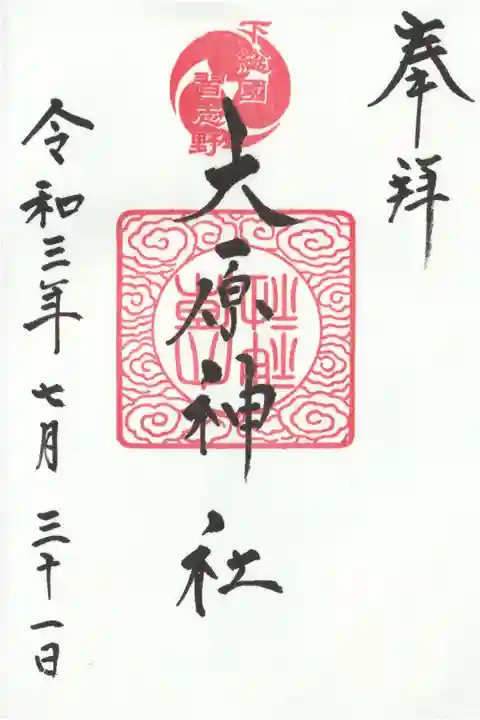 奉拝
下総國
習志野
大原神社
令和三年七月三十一日